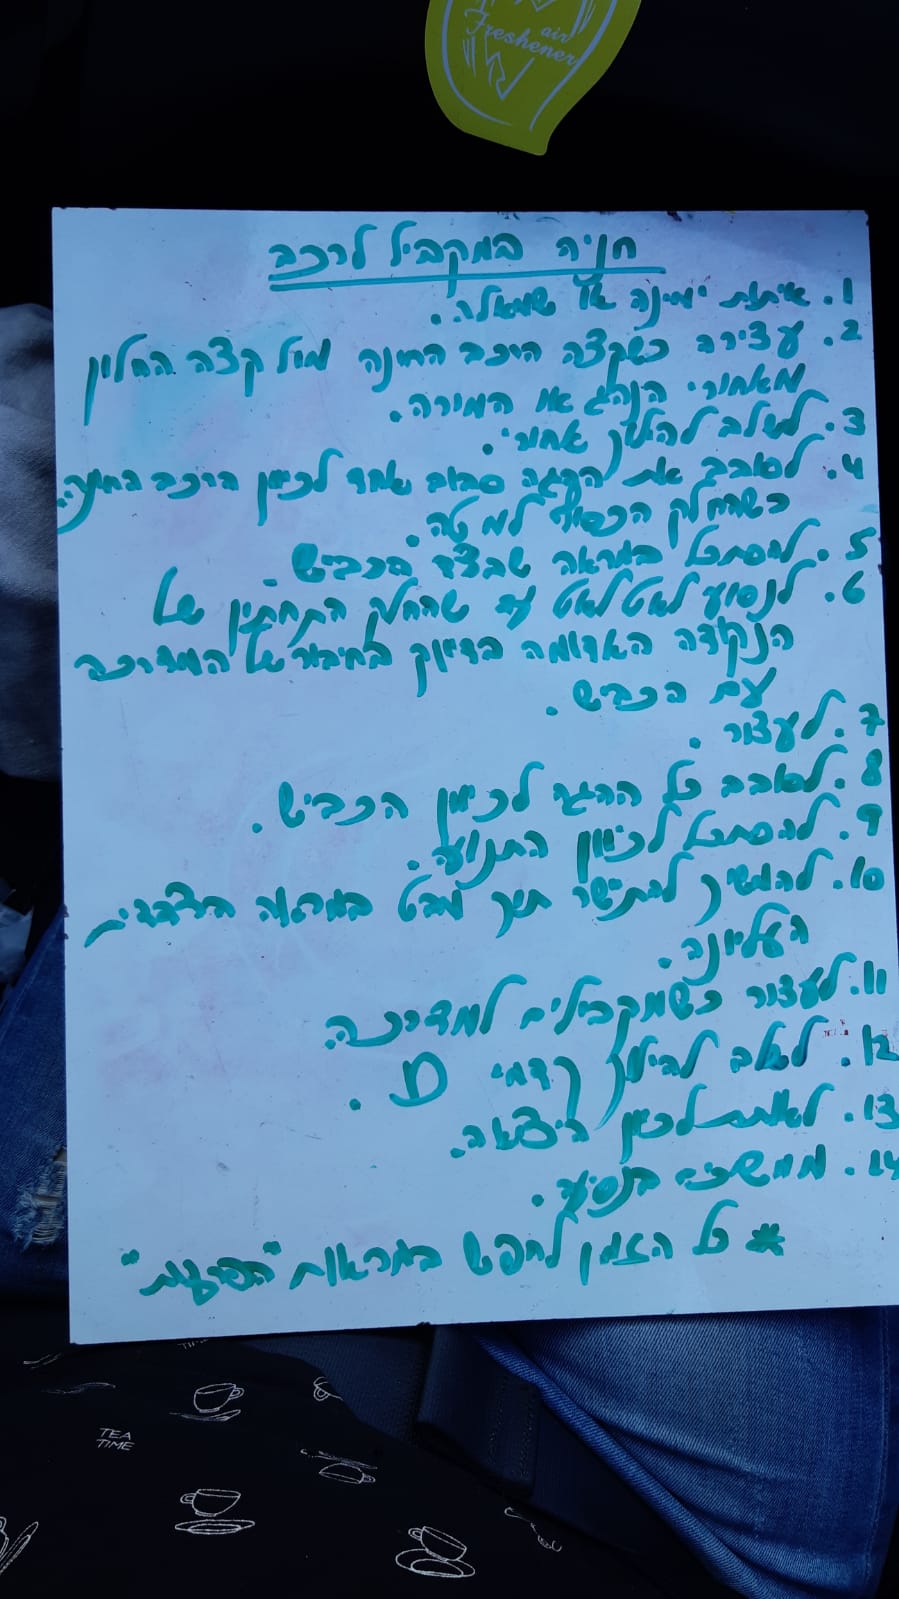 air
Freshener
חניה במקביל לרכב
1. איתות ימינה או שמאלה.
2. עצירה כשקצה הרכב החונה מול קצה החלון
מאחורי הנהג או המורה.
3. לשלב להילוך אחורי.
4. לסובב את ההגה סבוב אחד לכיוון הרכב החונה
כשהחלק הכסוף למטה.
5. להסתכל במראה שבצד הכביש.
6. לנסוע לאט לאט עד שהחלק התחתון של
הנקודה האדומה בדיוק בחיבור של המדרכה
עם הכביש.
7. לעצור.
8. לסובב כל ההגה לכיוון הכביש.
9. להסתכל לכיוון התנועה.
10. להמשיך להתישר תוך מבט במראה הצדדית
העליונה.
11. לעצור כשמקבילים למדרכה.
12. לשלב להילוך קדמי D.
13. לאותת לכיוון היציאה.
14. ממשיכים בנסיעה.
* כל הזמן לחפש במראות "הפרעות"
TIME
TEA
TIME